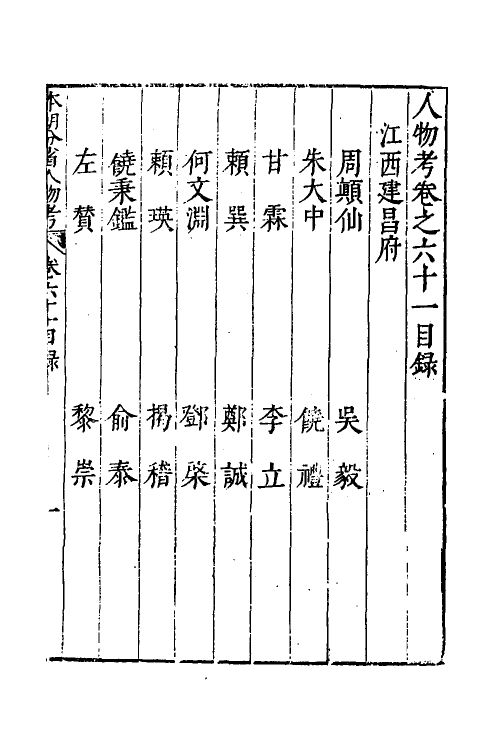 人物考卷之六十一目録
江西建昌府
周顛仙 吳毅
朱大中 饒禮
甘霖 李立
賴巽 鄭誠
何文淵 鄧棨
賴瑛 揭稽
饒秉鑑 俞泰
左贊 黎崇
本朝分省人物考 卷六十一目録 一